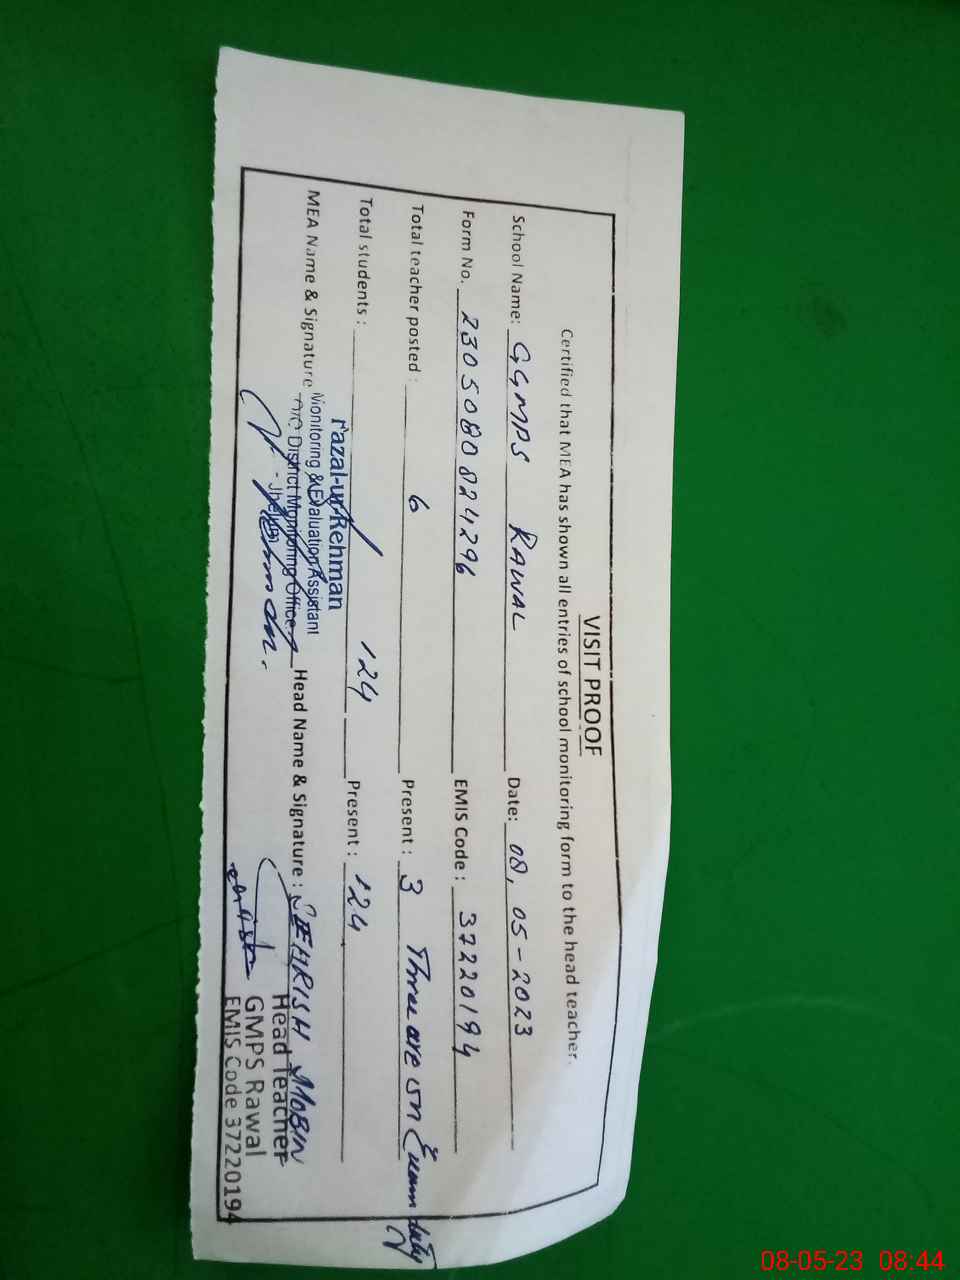 VISIT PROOF
Certified that MEA has shown all entries of school monitoring form to the head teacher.
School Name: GGMPS RAWAL Date: 08, 05-2023
Form No. 2305080824296 EMIS Code: 37220194
Total teacher posted: 6 Present: 3 Three are on Exam duty
Total students: 124 Present: 124
Fazal-ur-Rehman
MEA Name & Signature Monitoring & Evaluation Assistant Head Name & Signature: SEHRISH MOBIN
District Monitoring Office
- Jhelum
Head Teacher
GMPS Rawal
EMIS Code 37220194
08-05-23 08:44